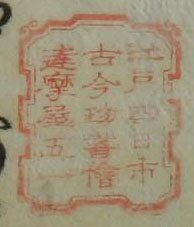 江戸四日市
古今珍書儈
達摩屋五